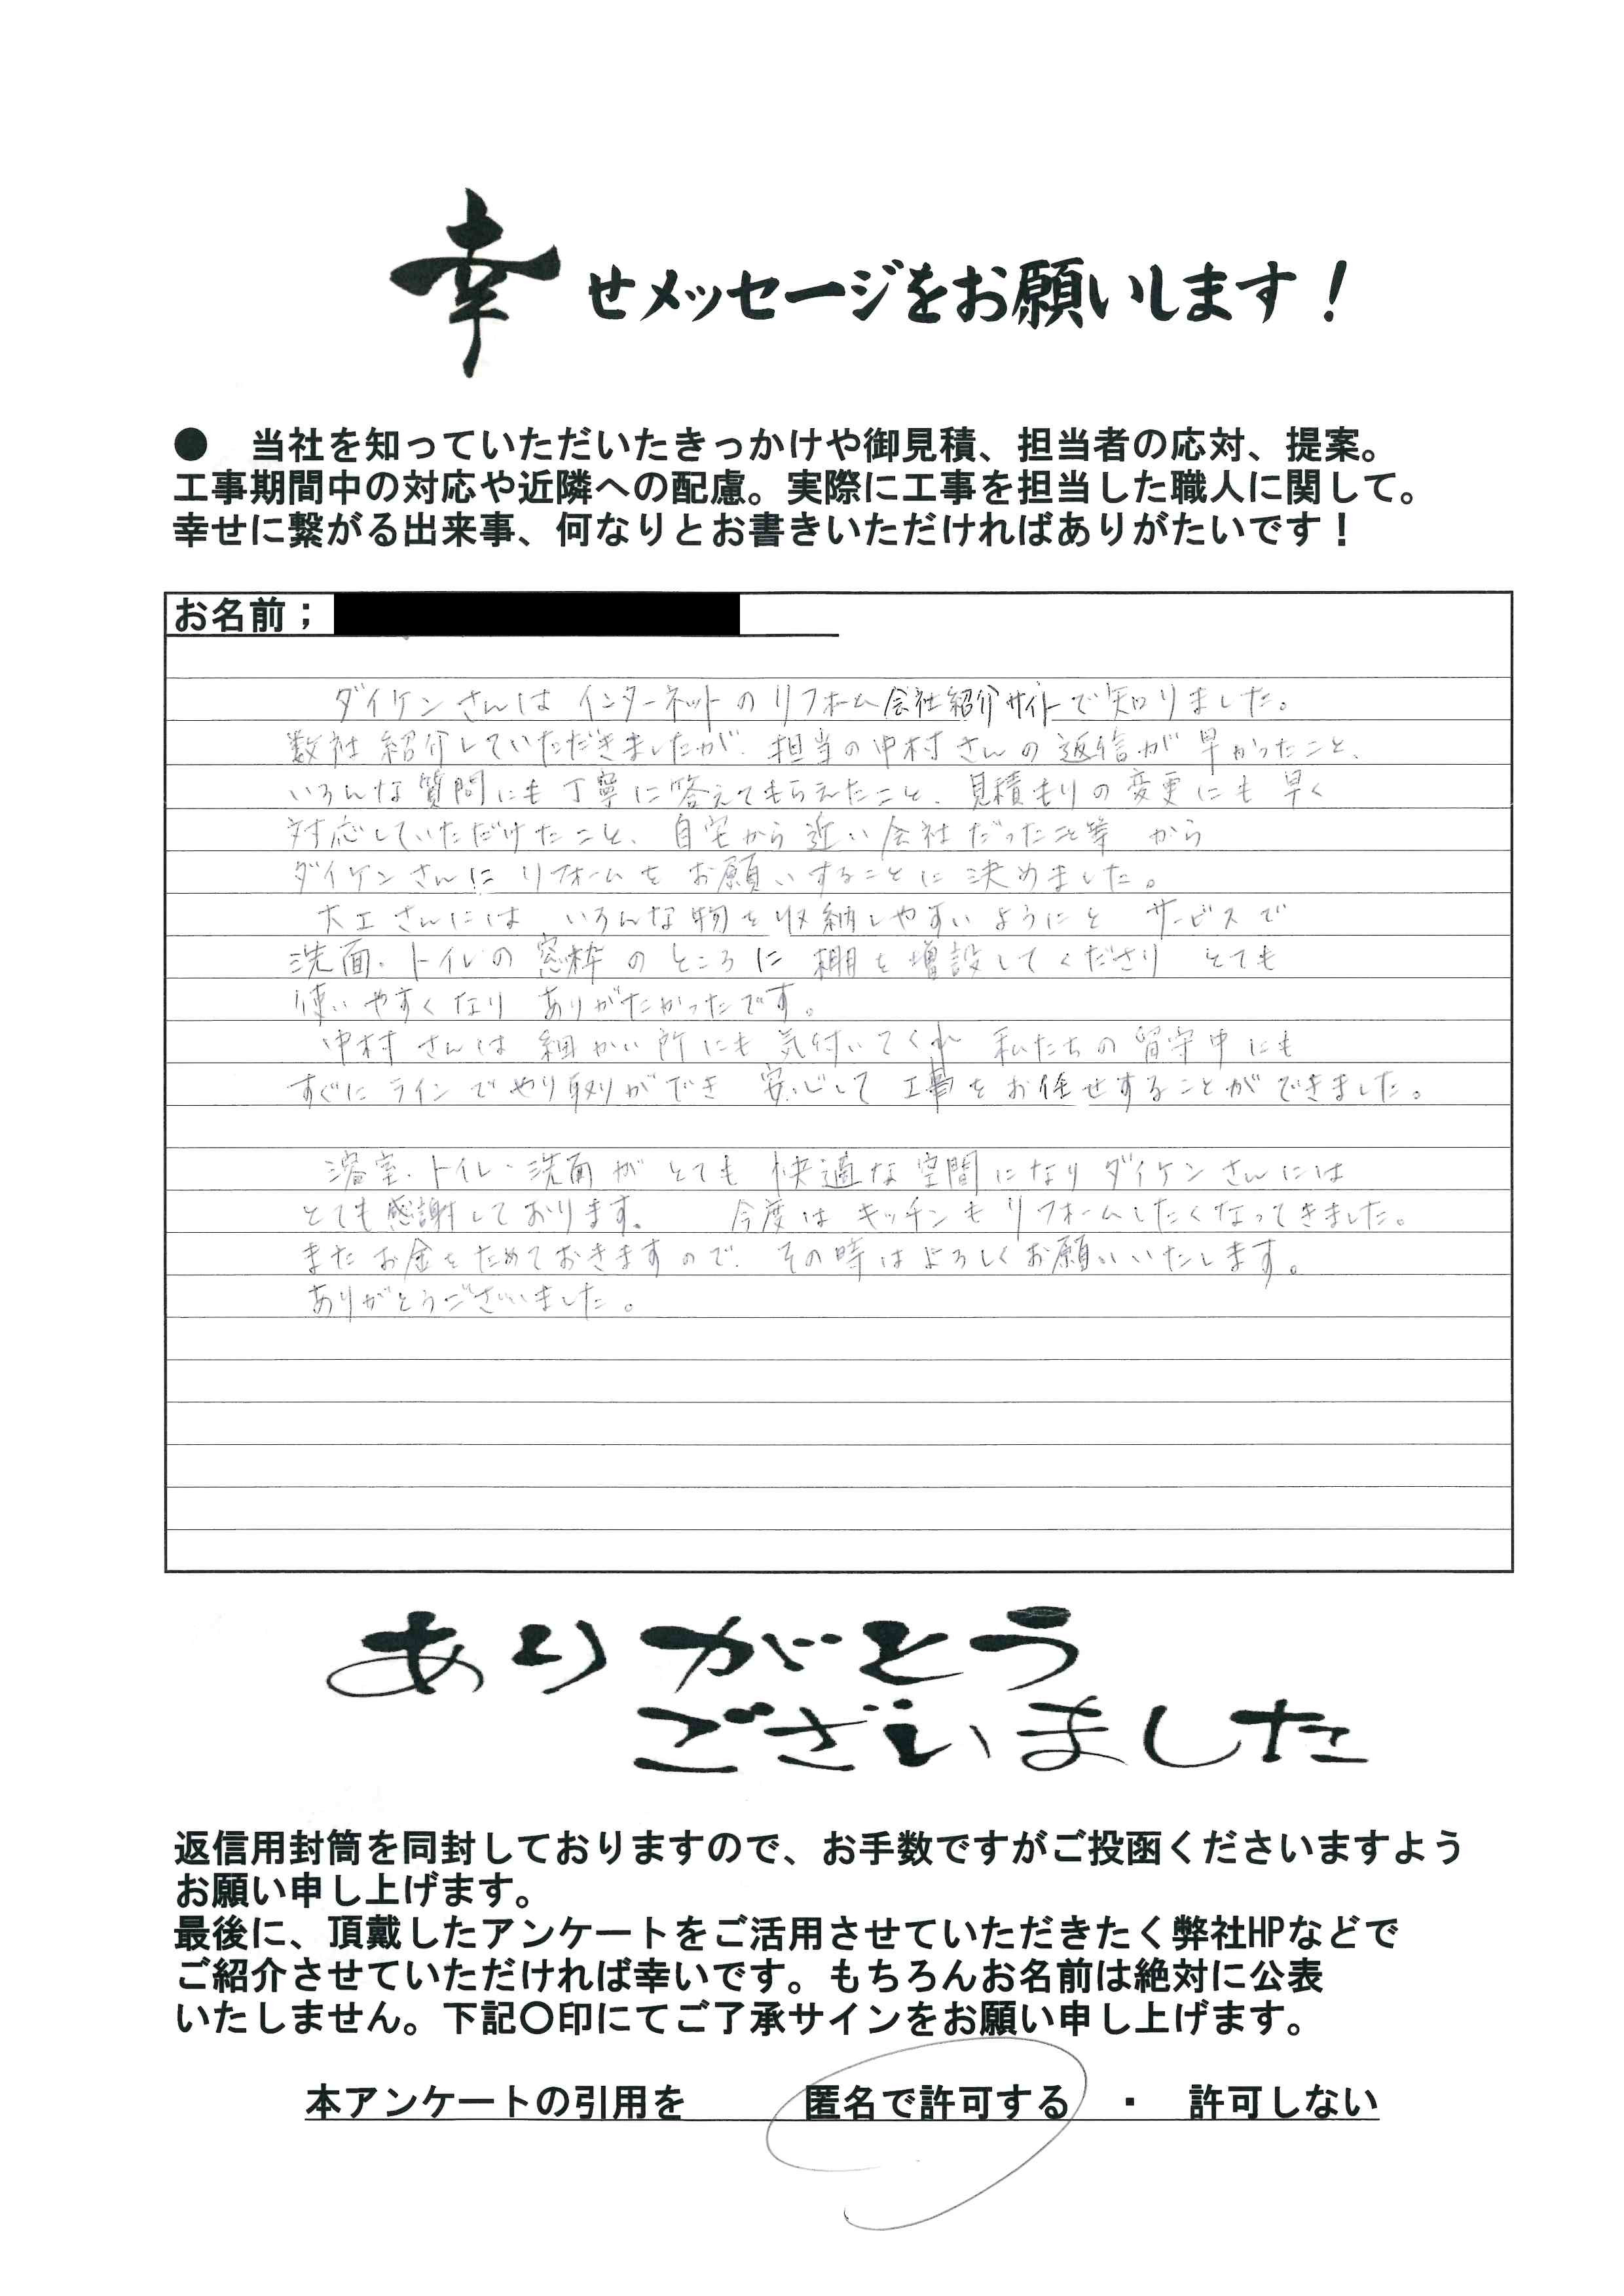 幸せメッセージをお願いします！
●　当社を知っていただいたきっかけや御見積、担当者の応対、提案。
工事期間中の対応や近隣への配慮。実際に工事を担当した職人に関して。
幸せに繋がる出来事、何なりとお書きいただければありがたいです！
お名前；
ダイケンさんは インターネットの リフォーム会社紹介サイトで知りました。
数社紹介していただきましたが、担当の中村さんの返信が早かったこと、
いろんな質問にも丁寧に答えてもらえたこと、見積もりの変更にも早く
対応していただけたこと、自宅から近い会社だったこと等 から
ダイケンさんに リフォームを お願いすることに決めました。
大工さんには いろんな物を収納しやすいようにと サービスで
洗面・トイレの窓枠のところに棚を増設してくださり とても
使いやすくなり ありがたかったです。
中村さんは細かい所にも気付いてくれ 私たちの留守中にも
すぐにラインでやり取りができ 安心して工事をお任せすることができました。
浴室・トイレ・洗面が とても 快適な空間になり ダイケンさんには
とても感謝しております。 今度は キッチンもリフォームしたくなってきました。
またお金をためておきますので、その時はよろしくお願いいたします。
ありがとうございました。
ありがとう
ございました
返信用封筒を同封しておりますので、お手数ですがご投函くださいますよう
お願い申し上げます。
最後に、頂戴したアンケートをご活用させていただきたく弊社HPなどで
ご紹介させていただければ幸いです。もちろんお名前は絶対に公表
いたしません。下記〇印にてご了承サインをお願い申し上げます。
本アンケートの引用を　　　匿名で許可する　・　許可しない